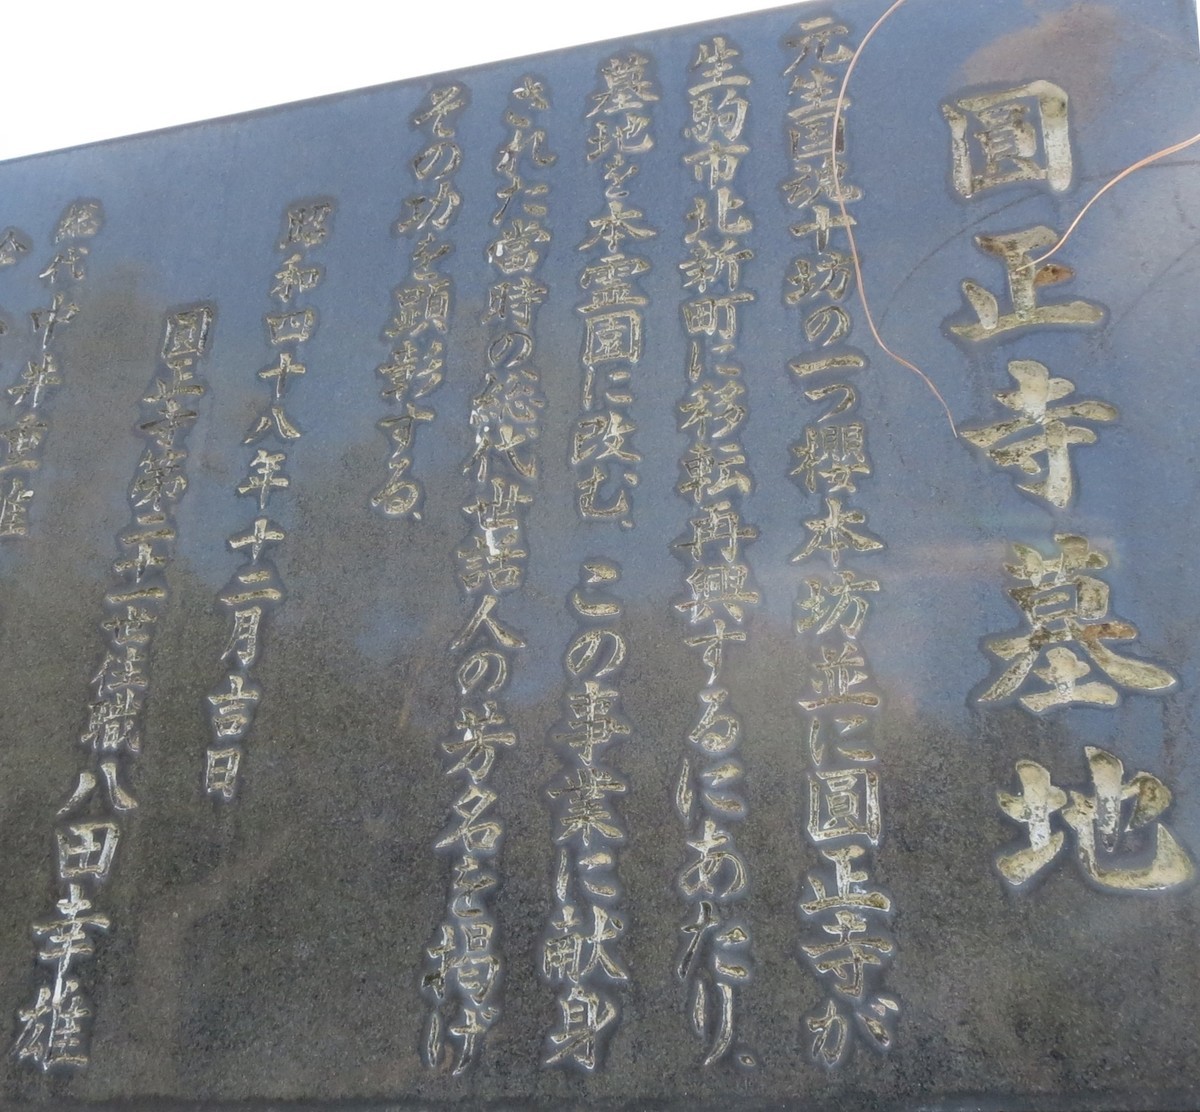 圓正寺墓地
元生國魂十坊の一つ櫻本坊並に圓正寺が
生駒市北新町に移転再興するにあたり、
墓地を本霊園に改む、この事業に献身
された當時の総代世話人の芳名を掲げ
その功を顕彰する、
昭和四十八年十二月吉日
圓正寺第二十一世住職八田幸雄
総代中井重雄